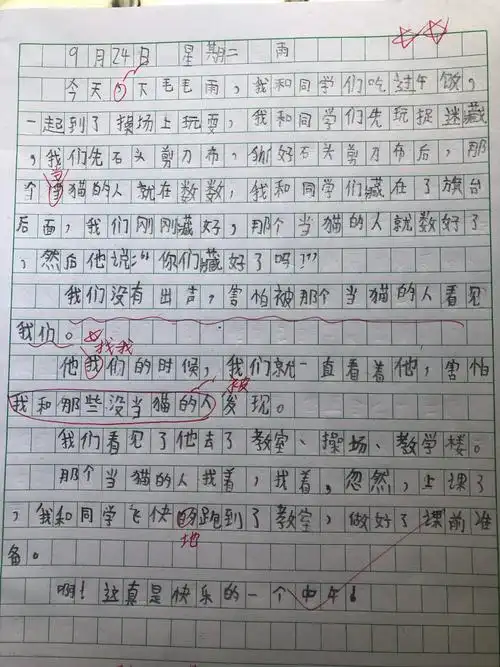 9月24日 星期二 雨
今天下毛毛雨，我和同学们吃过午饭，
一起到了操场上玩耍，我和同学们先玩捉迷藏
，我们先石头剪刀布，好石头剪刀布后，那
个当猫的人就在数数，我和同学们藏在了旗台
后面，我们刚刚藏好，那个当猫的人就数好了
，然后他说：“你们藏好了吗？”
我们没有出声，害怕被那个当猫的人看见
我们。
找我
他我们的时候，我们就一直看着他，害怕
被
我和那些没当猫的人发现。
我们看见了他去了教室、操场、教学楼。
那个当猫的人找着，找着，忽然，上课了
，我和同学飞快的跑到了教室，做好了课前准
地
备。
啊！这真是快乐的一个中午！